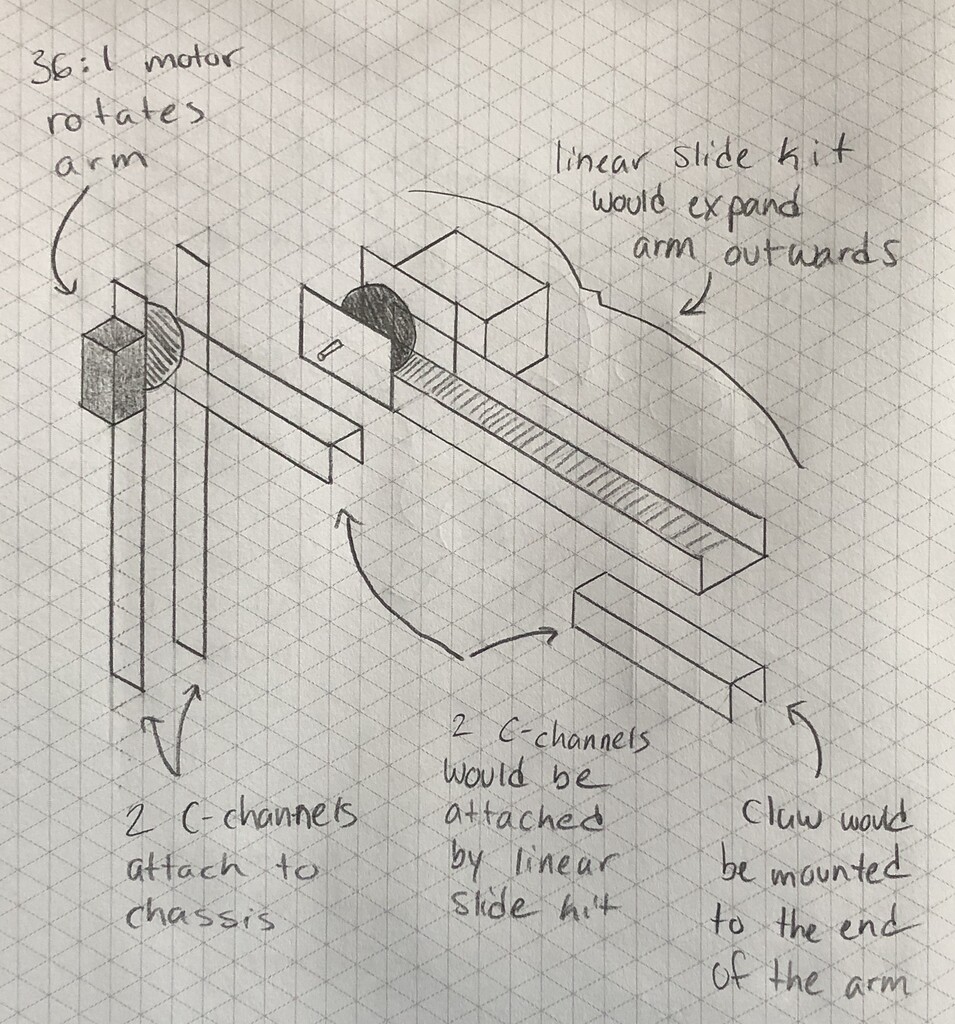 36:1 motor
rotates
arm
linear slide kit
would expand
arm outwards
2 C-channels
attach to
chassis
2 C-channels
would be
attached
by linear
slide kit
Claw would
be mounted
to the end
of the arm